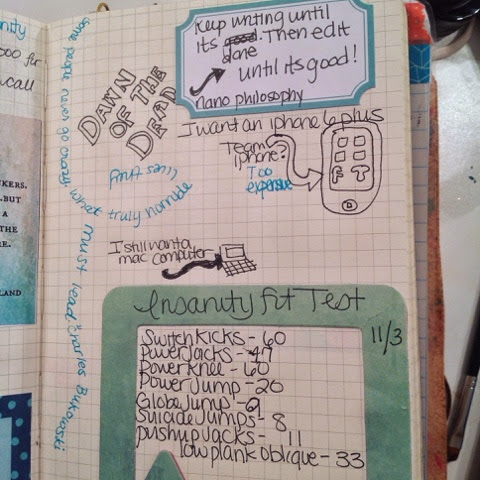 nity
000 for
call
KERS.
.BUT
A
THE
RE.
LAND
Keep writing until
its good. Then edit
done
until its good!
nano philosophy
DAWN
OF THE
DEAD
some people never go crazy what truly horrible
lives they
must lead" charles Bukowski
I want an iphone 6 plus
Team
iphone?
Too
expensive
F T
D
I still want a
mac computer
Insanity Fit Test
11/3
Switch Kicks - 60
Power Jacks - 47
Power Knee - 60
Power Jump - 20
Globe Jump - 9
Suicide Jumps - 8
pushup Jacks - 11
low plank oblique - 33